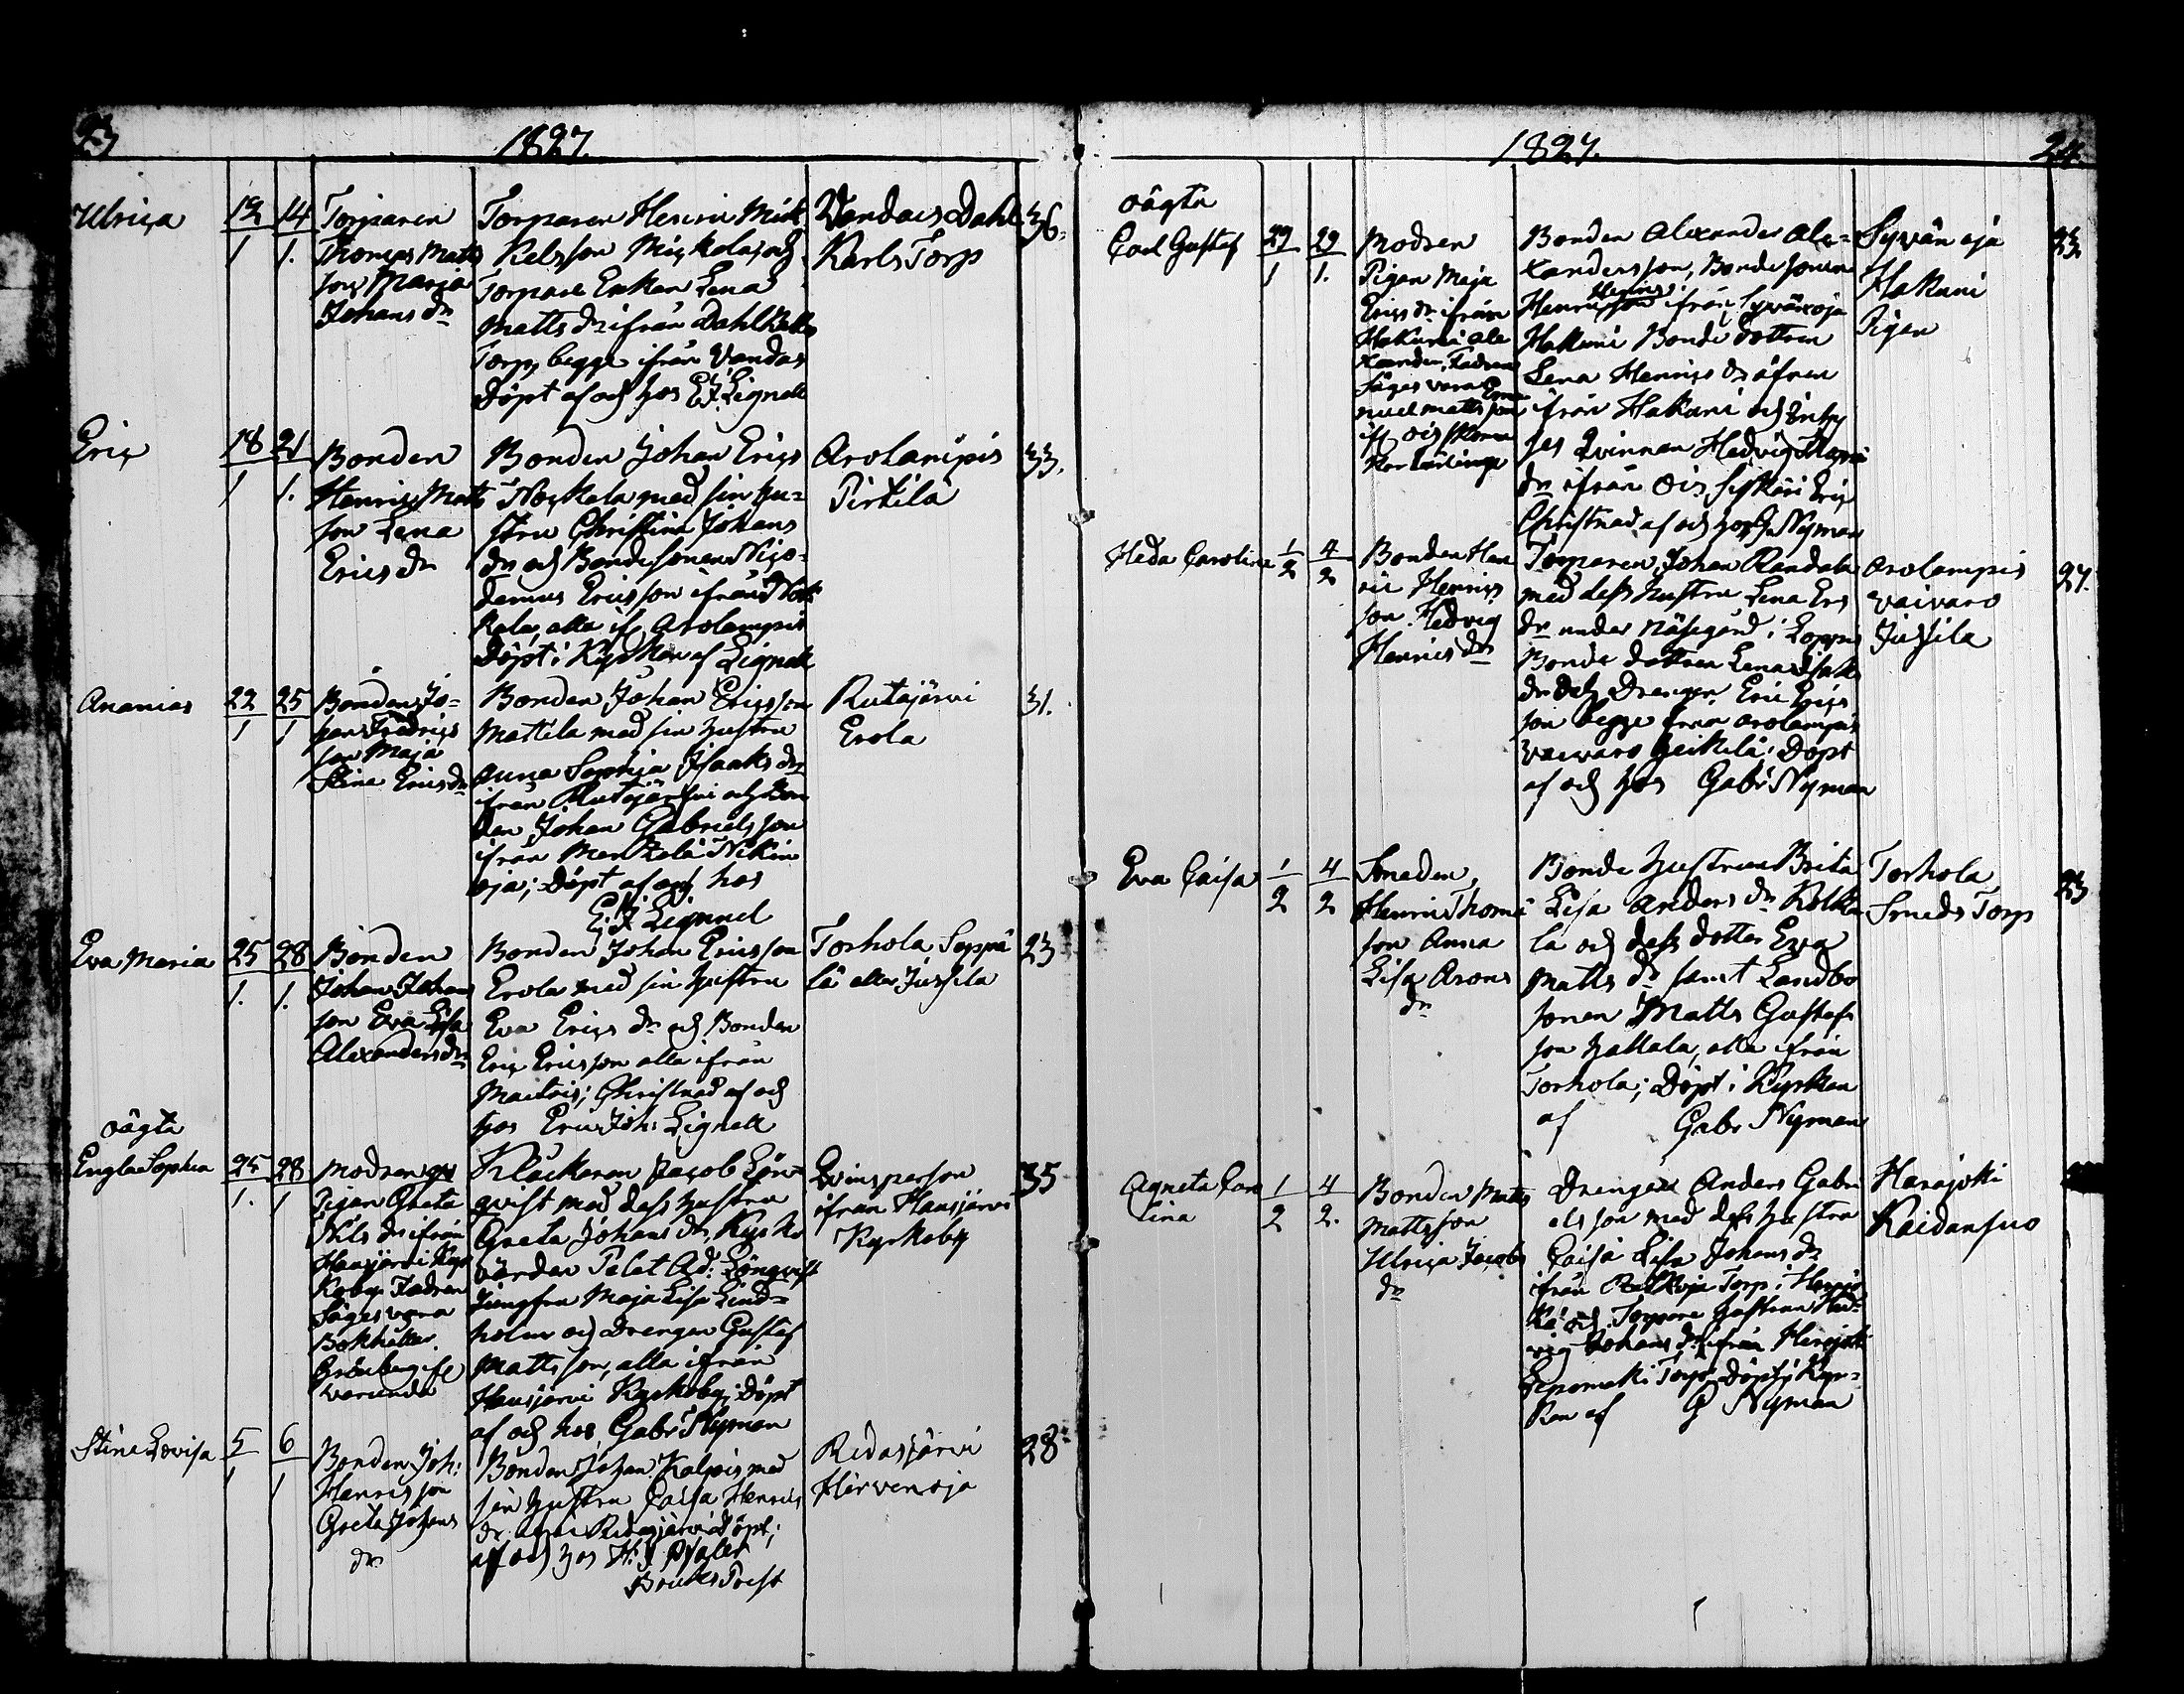 23
1827.
Ulrica
12 14
1 1.
Torparen
Thomas Matts
son Maria
Johans dr
Torparen Henric Mick
kelsson Mickola och
Torpare Enkan Lena
Matts dr ifrån Dahl
Torp, begge ifrån Vandas
Döpt af och hos E J Lignell
Vandas Dahl
Karls Torp
36.
Eric
18 21
1 1.
Bonden
Henric Matts
son Lena
Erics dr
Bonden Johan Erics
med sin hu=
stru Christina Johans
dr och Bondesonen Nico=
demus Ericsson ifrån
alla if. Arolampis
Döpt i Kyrkan af Lignell
Arolampis
Pirtilä
33.
Ananias
22 25
1 1
Bonden Jo=
han Fredrics
son Maja
Stina Erics dr
Bonden Johan Ericsson
Mattila med sin hustru
Anna Sophia Isaaks dr
ifrån Rutajärvi och Bon
den Johan Gabrielsson
ifrån Markkola Nikin
oja; Döpt af och hos
E. J. Lignell
Rutajärvi
Erola
31.
Eva Maria
25 28
1. 1.
Bonden
Johan Johans
son Eva Lisa
Alexanders dr
Bonden Johan Ericsson
Erola med sin hustru
Eva Erics dr och Bonden
Eric Ericsson alla ifrån
Maitois; Christnad af och
hos Eric Joh: Lignell
Torhola Seppä
lä eller Jussila
23
oägta
Engla Sophia
25 28
1. 1
Modren
Pigan Greta
Nils dr ifrån
Hausjärvi Kyr
koby. Fadren
säges vara
Bokhåller
Klåckaren Jacob Lön=
qvist med dess hustru
Greta Johans dr, Kyrko
värden Ad: Lönqvist
Jungfru Maja Lisa Lind=
holm och Drengen Gustaf
Mattsson, alla ifrån
Hausjärvi Kyrkoby; Döpt
af och hos Gabr Nyman
Qvinsperson
ifrån Hausjärvi
Kyrkoby
35
Stina Lovisa
5 6
1 1
Bonden Joh:
Henricsson
Greta Johans
dr
Bonden Johan Kalpis med
sin hustru Caisa Henrics
dr ifrån Ridasjärvi döpt;
af och hos H: J
Bruks Prest
Ridasjärvi
Hirvenoja
28
1827.
24.
oägta
Carl Gustaf
29 29
1 1.
Modren
Pigan Maja
Erics dr ifrån
Hakuni Ale
xander, Fadren
säges vara Ema
nuel Mattsson
Bonden Alexander Ale=
xandersson, Bondesonen
Henric Henricsson ifrån Syvänoja
Hakuni Bonde dottren
Lena Henrics dr äfven
ifrån Hakuni och Enky
jes Qvinnan Hedvig
dr ifrån
Christnad af och hos G. Nyman
Syvänoja
Hakuni
Pigan
23
Heda Carolina
1 4
2 2
Bonden Hen
ric Henrics
son Hedvig
Henrics dr
Torparen Johan Randala
med dess hustru Lena Ers
dr under Näsegård i Loppis
Bonde dottren Lena Isak
dr och Drengen Eric Erics
son begge från Arolampis
Vaivaro Heikilä; Döpt
af och hos Gabr Nyman
Arolampis
Vaivaro
Jussila
27.
Eva Caisa
1 4
2 2
Smeden
Henric Thomæ
son Anna
Lisa Arons
dr
Bonde hustrun Brita
Lisa Anders dr Kolka
la och dess dotter Eva
Matts dr samt Landbo
sonen Matts Gustaf
son Hallala, alla ifrån
Torhola; Döpt i Kyrkan
af Gabr Nyman
Torhola
Smeds Torp
23
Agneta Caro
lina
1 4
2 2.
Bonden Matts
Mattsson
Ulrica Jacobs
dr
Drengen Anders Gabri
elsson med dess hustru
Caisa Lisa Johans dr
ifrån Torp i Herajo
ki och Torpare hustrun Hed=
vig Johans dr ifrån Herajoki
Torp. Döpt i Kyr=
kan af G Nyman
Harajoki
Kaidansuo